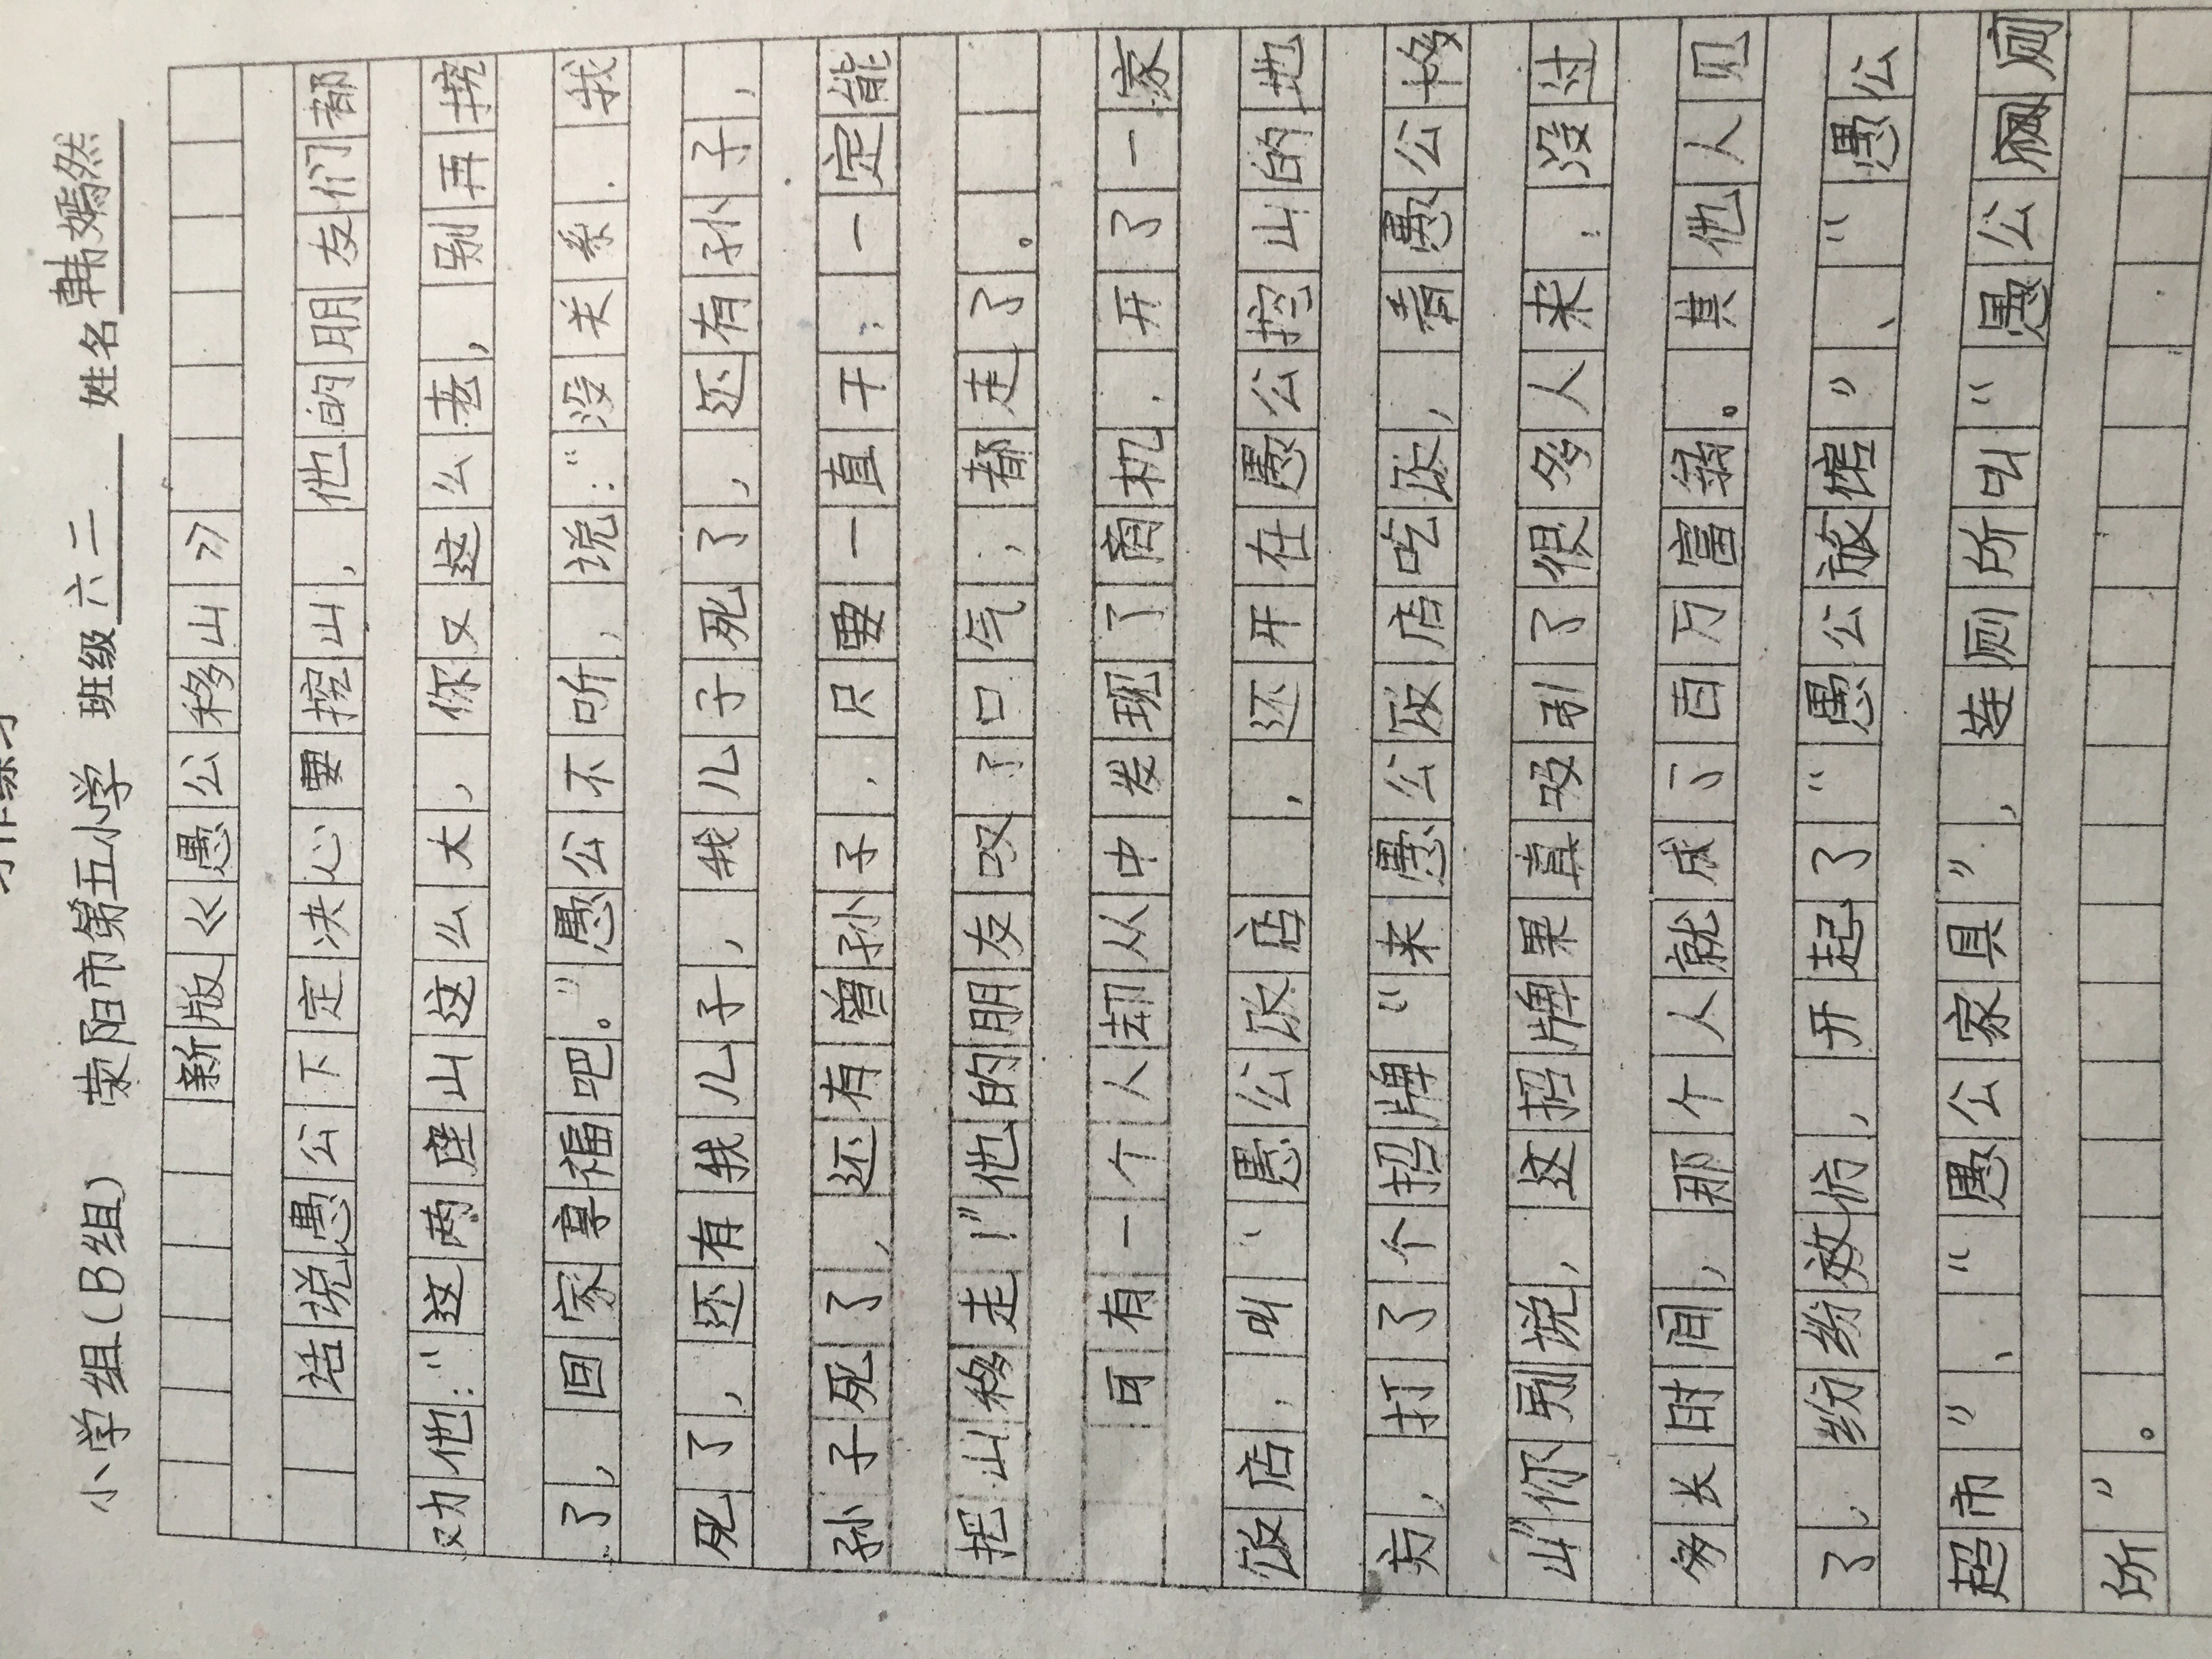 小学组(B组) 荥阳市第五小学 班级六二 姓名韩嫣然
新版《愚公移山》
话说愚公下定决心要挖山,他的朋友们都
劝他:“这两座山这么大,你又这么老,别再挖
了,回家享福吧。”愚公不听,说:“没关系.我
死了,还有我儿子,我儿子死了,还有孙子,
孙子死了,还有曾孙子,只要一直干,一定能
把山移走!”他的朋友叹了口气,都走了。
可有一个人却从中发现了商机,开了一家
饭店,叫“愚公饭店,还开在愚公挖山的地
方,打了个招牌“来愚公饭店吃饭,看愚公移
山”你别说,这招牌果真吸引了很多人来,没过
多长时间,那个人就成了百万富翁。其他人见
了,纷纷效仿,开起了“愚公旅馆”、“愚公
超市”、“愚公家具”,连厕所叫“愚公厕
所”。